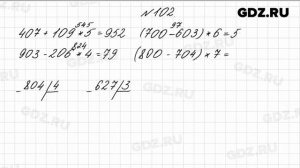 GDZ.RU
№102
545 97
407 + 109 * 5 = 952 (700 - 603) * 6 = 5
824
903 - 206 * 4 = 79 (800 - 704) * 7 =
- 804 | 4 - 627 | 3
GDZ.RU